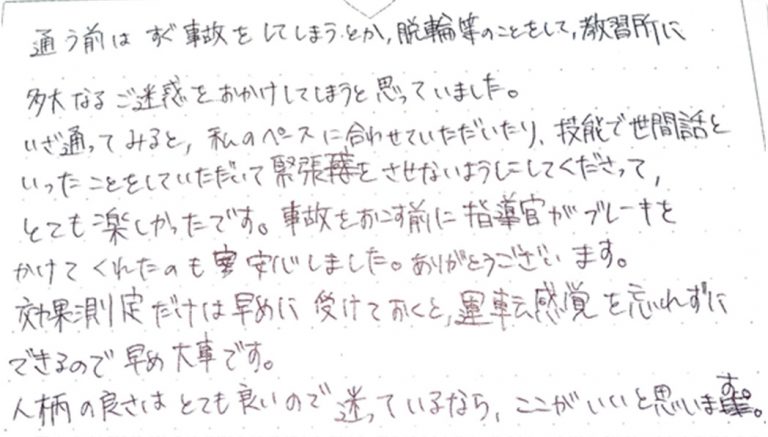 通う前は すぐ事故をしてしまうとか、脱輪等のことをして、教習所に
多大なるご迷惑をおかけしてしまうと思っていました。
いざ通ってみると、私のペースに合わせていただいたり、技能で世間話と
いったことをしていただいて緊張感をさせないようにしてくださって、
とても楽しかったです。事故をおこす前に指導官がブレーキを
かけてくれたのも安心しました。ありがとうございます。
効果測定だけは早めに受けておくと、運転感覚を忘れずに
できるので早め大事です。
人柄の良さはとても良いので迷っているなら、ここがいいと思います。